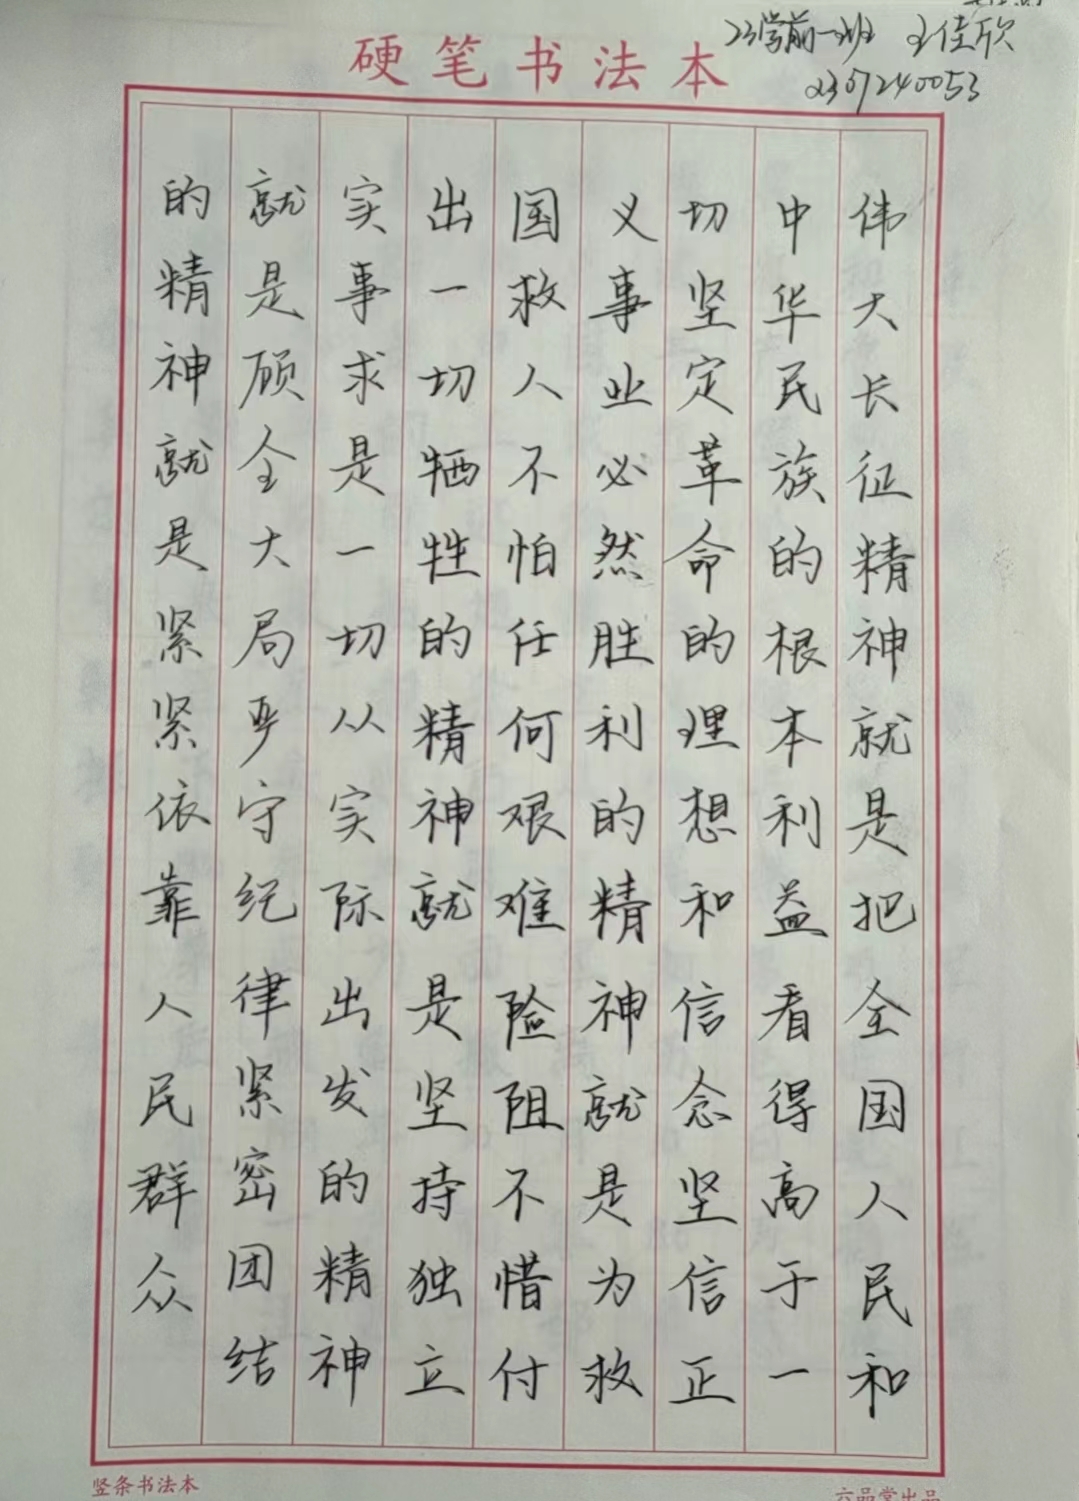 硬笔书法本
23学前一班 王佳欣
2307240053
伟大长征精神就是把全国人民和
中华民族的根本利益看得高于一
切坚定革命的理想和信念坚信正
义事业必然胜利的精神就是为救
国救人不怕任何艰难险阻不惜付
出一切牺牲的精神就是坚持独立
实事求是一切从实际出发的精神
就是顾全大局严守纪律紧密团结
的精神就是紧紧依靠人民群众
竖条书法本
六品堂出品